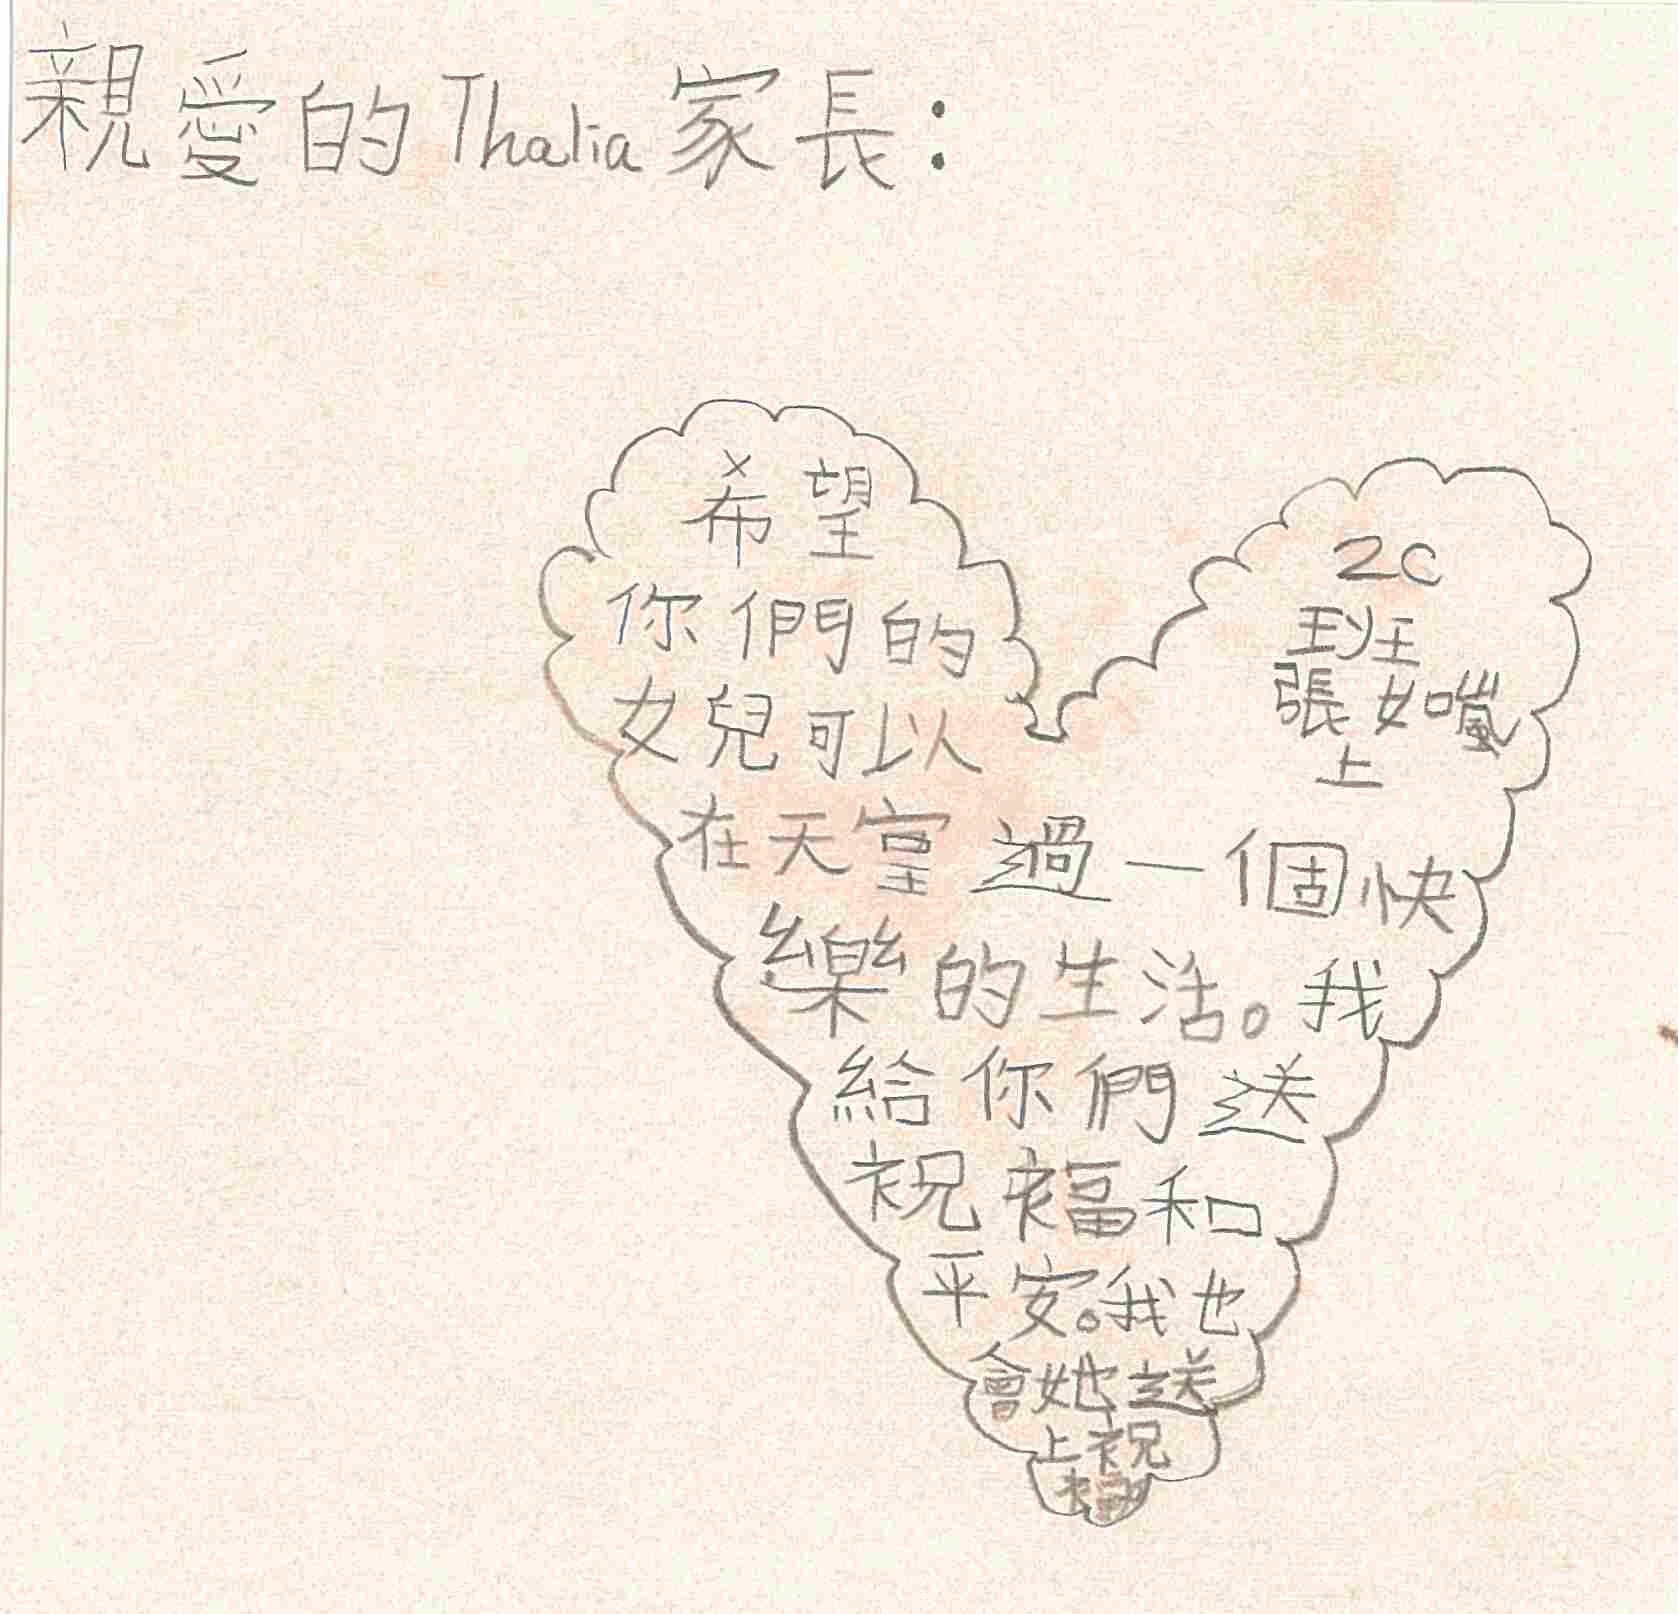 親愛的Thalia家長：
希望
你們的
女兒可以
在天堂過一個快
樂的生活。我
給你們送
祝福和
平安。我也
會她送
上祝
福
2C
班
張如嵐
上